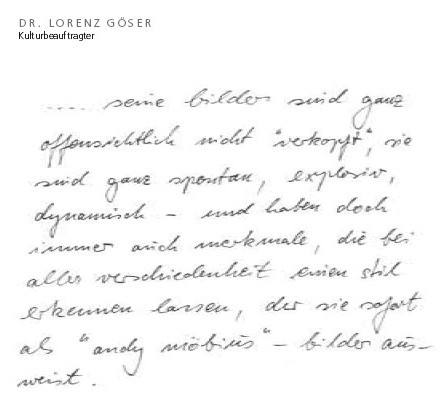 DR. LORENZ GÖSER
Kulturbeauftragter
.... seine bilder sind ganz
offensichtlich nicht "verkopft", sie
sind ganz spontan, explosiv,
dynamisch – und haben doch
immer auch merkmale, die bei
aller verschiedenheit einen stil
erkennen lassen, der sie sofort
als "andy möbius" – bilder aus-
weist.